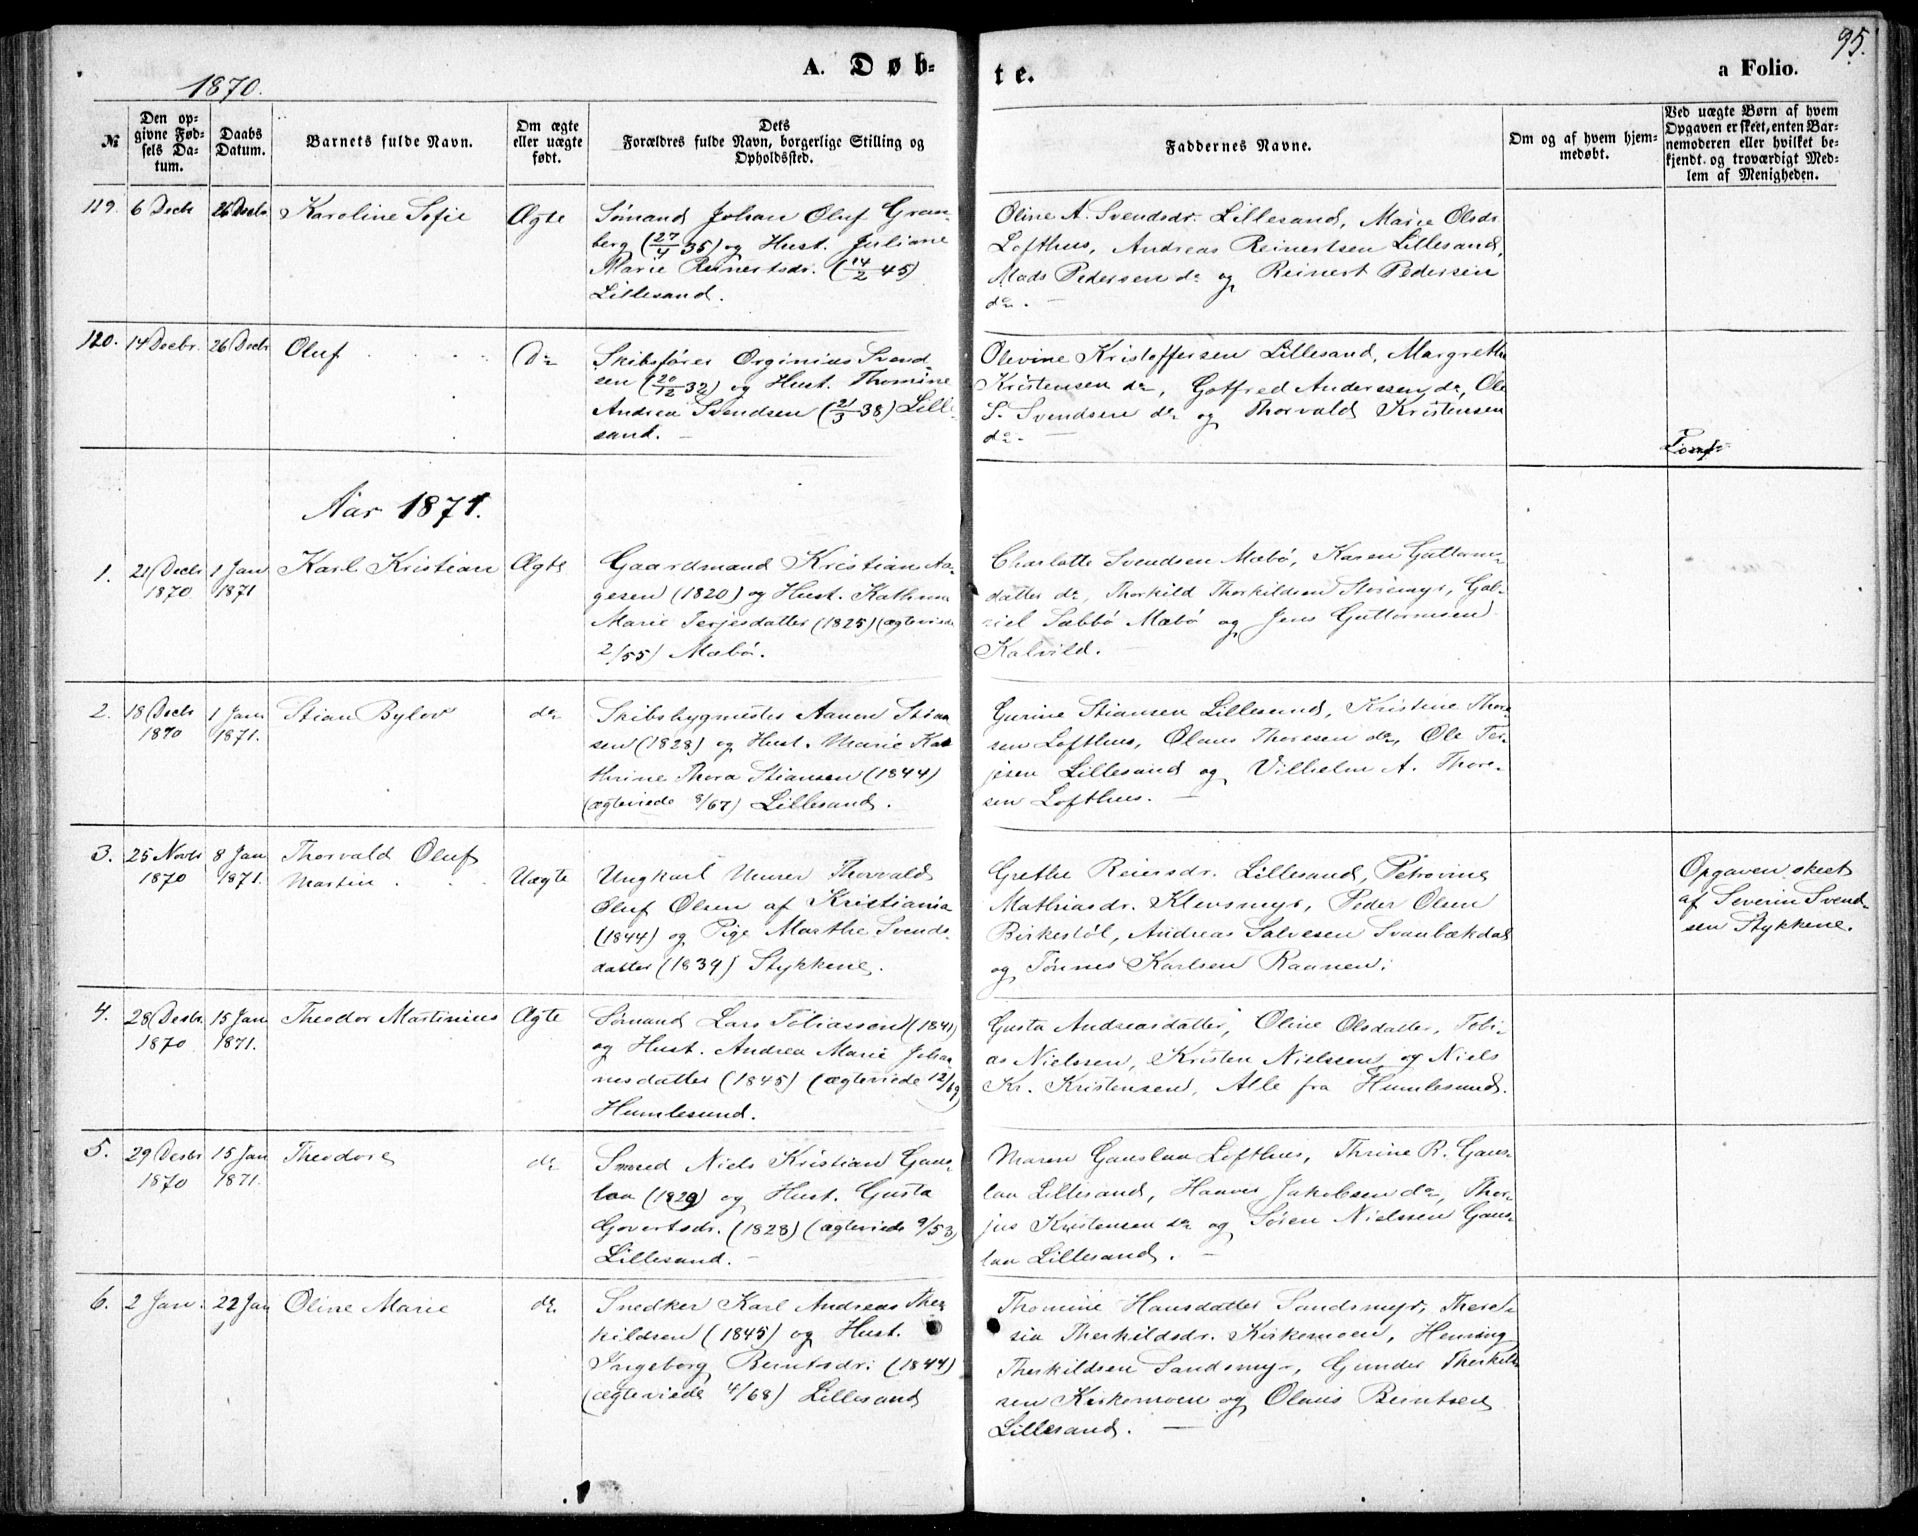 95.
A. Døb-
te.
a Folio.
1870.
№
Den op-
givne Fød-
sels Da-
tum.
Daabs
Datum.
Barnets fulde Navn.
Om ægte
eller uægte
født.
Dets
Forældres fulde Navn, borgerlige Stilling og
Opholdssted.
Faddernes Navne.
Om og af hvem hjem-
medøbt.
Ved uægte Børn af hvem
Opgaven er skeet, enten Bar-
nemoderen eller hvilket be-
kjendt og troværdigt Med-
lem af Menigheden.
119. 6 Decbr 26 Decbr Karoline Sofie Ægte
Sømand Johan Oluf Gran-
berg (27/4 35) og Hust. Juliane
Marie Reinertsdr. (14/2 45)
Lillesand.
Oline A. Svendsdr. Lillesand, Marie Olsdr.
Lofthus, Andreas Reinertsen Lillesand,
Mads Pedersen do og Reinert Pedersen
do. —
120. 14 Decbr. 26 Decbr Oluf Do
Skibsfører Orginius Svend-
sen (20/12 32) og Hust. Thomine
Andrea Svendsen (21/3 38) Lille-
sand. —
Olevine Kristoffersen Lillesand, Margrethe
Kristensen do, Gotfred Anderssen do, Ole
S. Svendsen do og Thorvald Kristensen
do. —
Aar 1871.
1. 21 Decbr 1 Jan Karl Kristian Ægte
1870 1871
Gaardmand Kristian Aa-
gesen (1820) og Hust. Kathrine
Marie Terjesdatter (1825) (ægteviede
2/55) Mæbø.
Charlotte Svendsen Mæbø, Karen Guttorms-
datter do, Thorkild Thorkildsen Storemyr, Gab-
riel Sæbbø Mæbø og Jens Guttormsen
Kalvild. —
2. 18 Decbr 1 Jan Stian Bylov do
1870 1871.
Skibsbygmester Aanen Stian-
sen (1828) og Hust. Marie Kat-
hrine Thora Stiansen (1844)
(ægteviede 8/67) Lillesand.
Gurine Stiansen Lillesand, Kristine Thor-
sen Lofthus, Olaus Thoresen do, Ole Ter-
jesen Lillesand og Vilhelm A. Thore-
sen Lofthus. —
3. 25 Novbr 8 Jan Thorvald Oluf
1870 1871. Martin Uægte
Ungkarl Murer Thorvald
Oluf Olsen af Kristiania
(1844) og Pige Marthe Svends-
datter (1839) Stykkene.
Grethe Reiersdr. Lillesand, Petrovine
Mathiasdr. Klevsmyr, Peder Olsen
Birkestøl, Andreas Salvesen Svanbækdal
og Tønnes Karlsen Raanen.
Opgaven skeet
af Severin Svend-
sen Stykkene.
4. 28 Decbr 15 Jan Theodor Martinius Ægte
1870 1871.
Sømand Lars Tobiassen (1841)
og Hust. Andrea Marie Johan-
nesdatter (1845) (ægteviede 12/69)
Humlesund.
Gusta Andreasdatter, Oline Olsdatter, Tobi-
as Nielssen, Kristen Nielssen og Niels
Kr. Kristensen, Alle fra Humlesund.
5. 29 Decbr 15 Jan Theodore do
1870 1871.
Smed Niels Kristian Gaus-
laa (1829) og Hust. Gusta
Govertsdr. (1828) (ægteviede 9/53)
Lillesand. —
Maren Gauslaa Lofthus, Thrine R. Gaus-
laa Lillesand, Haaver Jakobsen do, Thor-
jus Kristensen do og Søren Nielssen Gaus-
laa Lillesand. —
6. 2 Jan. 22 Jan Oline Marie do
Snedker Karl Andreas Ther-
kildsen (1845) og Hust.
Ingeborg Berntsdr. (1844)
(ægteviede 4/68) Lillesand
Thomine Hansdatter Sandsmyr, There-
sia Therkildsdr. Kirkemoen, Henning
Therkildsen Sandsmyr, Gunder Therkild-
sen Kirkemoen og Olaus Berntsen
Lillesand. —